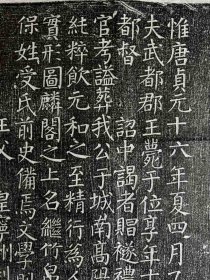 惟唐貞元十六年夏四月
夫武都郡王薨于位享年
都督 詔中謁者賵襚禮
官考謚葬我公于城南高陽
純粹飲元和之至精行為
實形圖麟閣之上名繼竹帛
保姓受氏前史備焉文學則